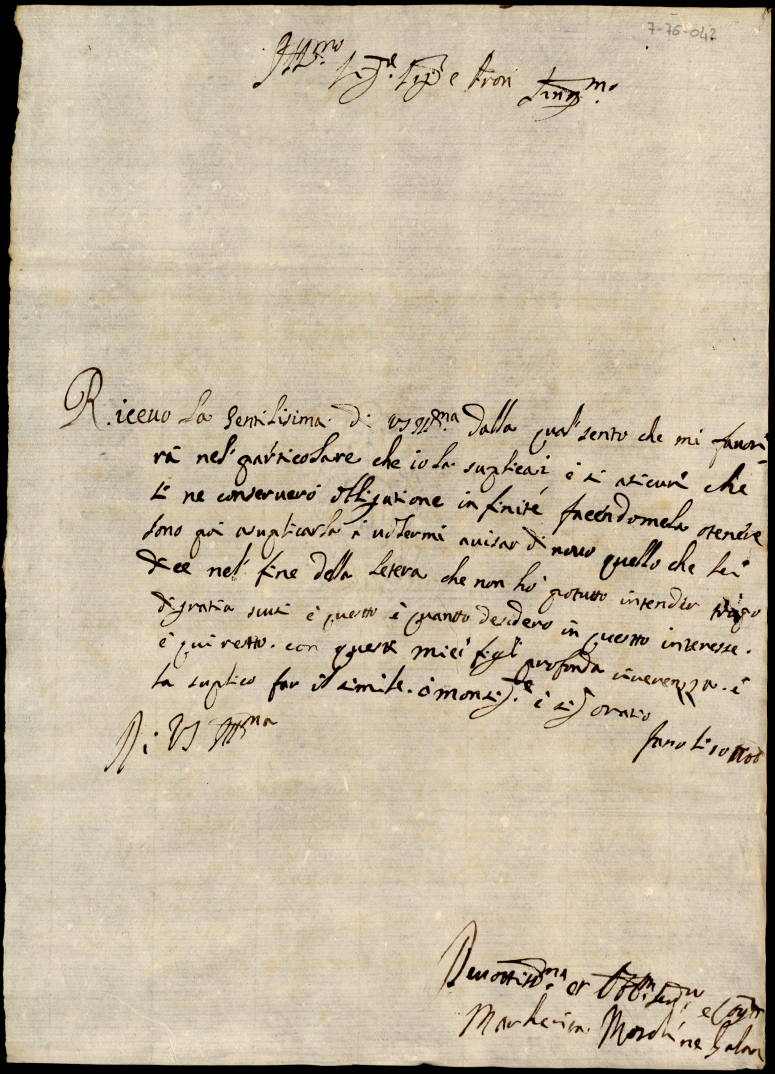 7-76-042
Ill.mo Sig.re Sig.r e Pron Sing.mo
Riceuo la gentilisima di VS Ill.ma dalla qual sento che mi fauori
rà nel particolare che io la suplicai è si asicuri che
li ne conseruerò obligatione infinite facendomela otenere
sono poi asuplicarla à uolermi auisar di nouo quello che lei
dice nel fine della letera che non hò potutto intender
di gratia scusi è questo è quanto desidero in questto interesse.
è qui resto. con questi miei figli profonda riuerenzza. è
la suplico far il simile. à monsig.re è sig Oratio
Di VS Ill.ma
fano li 10
Deuottis.ma et Obl.ma e